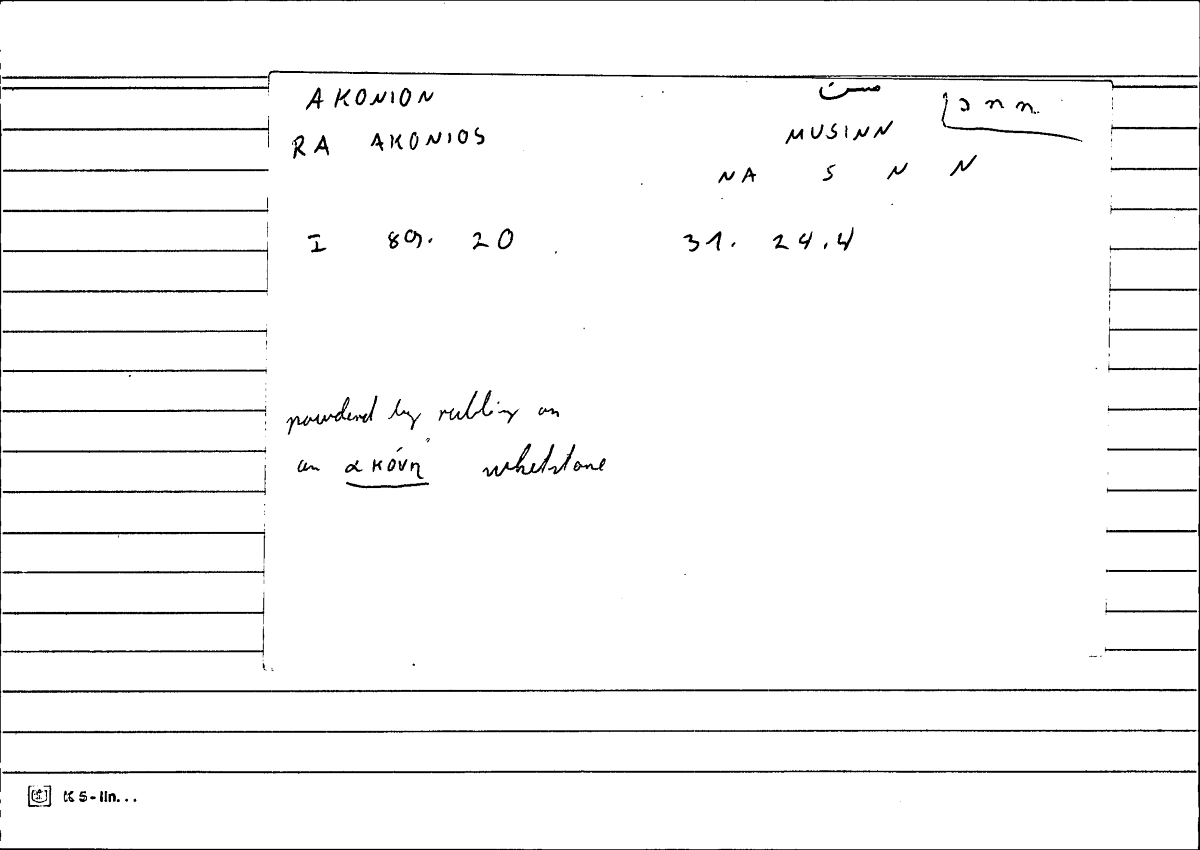 AKONION مسن
RA AKONIOS MUSINN
NA S N N
I 89. 20 31. 24.4
powdered by rubbing on
an ακόνη whetstone
K 5-lin...